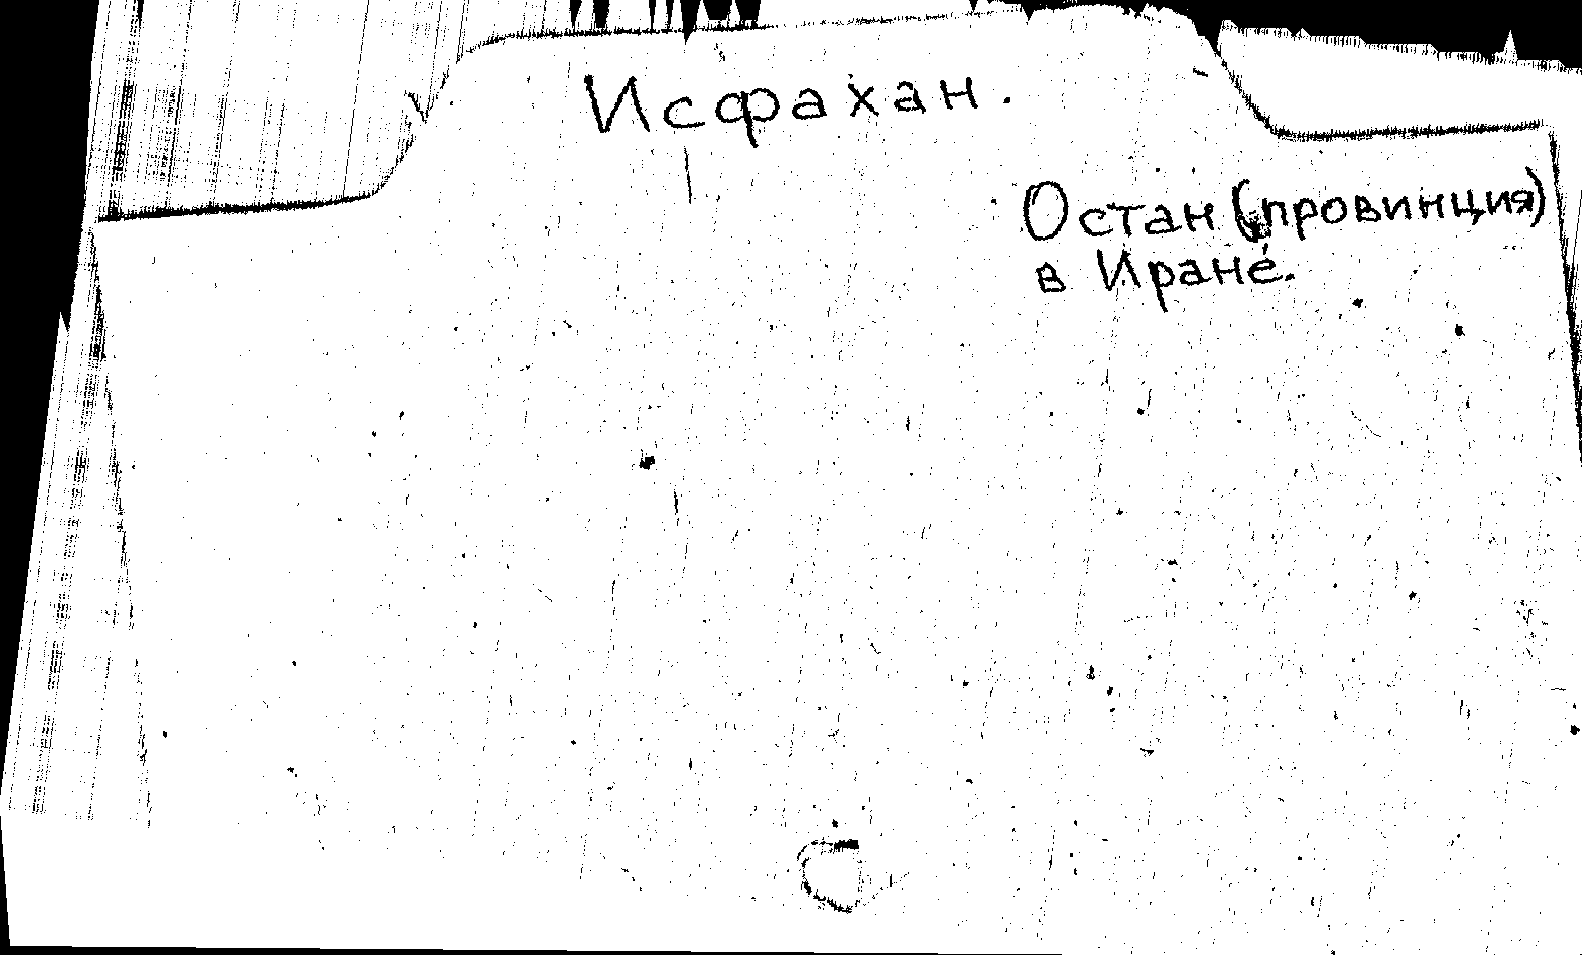 Исфахан.
Остан (провинция)
в Иране.